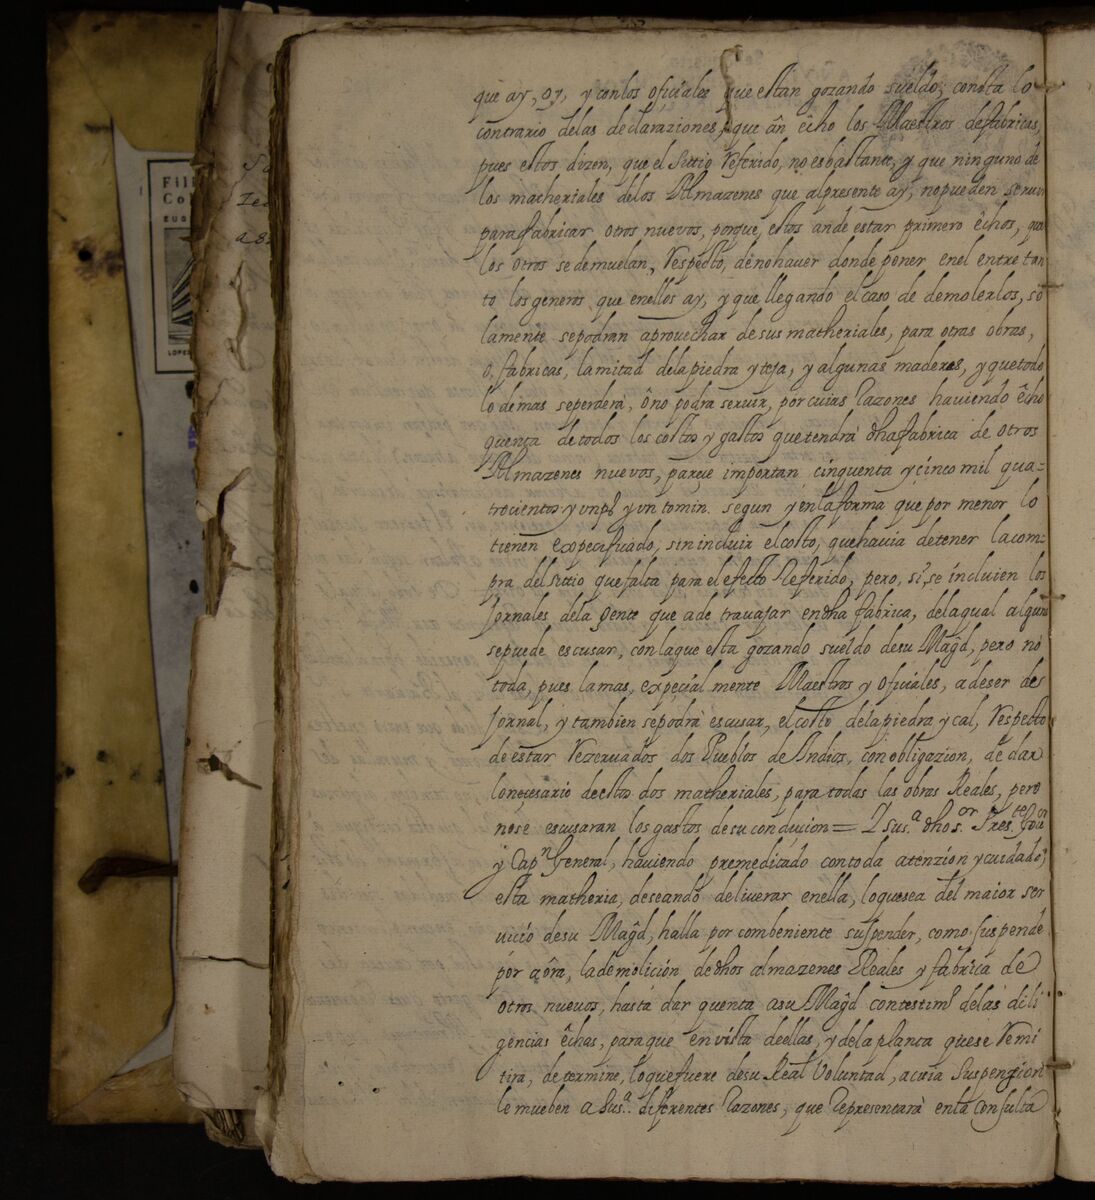 que ay, oy, y con los oficiales que estan gozando sueldo; consta lo
contrario delas declaraziones, que ân êcho los Maestros defabricas,
pues estos dizen, que el Sittio Referido, no es bastante, y que ninguno de
los matheriales delos Almazenes que alpresente ay, nopueden seruir
parafabricar otros nuevos, porque, estos ande estar primero êchos, que
los otros se demuelan, Respecto, denohauer donde poner enel entretan
to los generos que enellos ay, y que llegando el caso de demolerlos, so
lamente sepodran aprouechar desus matheriales, para otras obras,
o, fabricas, lamitad delapiedra yteja, y algunas maderas, y quetodo
lo demas seperderà, ôno podra seruir, por cuias Razones hauiendo êcho
quenta detodos los costos y gastos quetendrà dhafabrica de otros
Almazenes nuevos, pareze importan cinquenta y cinco mil qua=
trocientos y un p.s y un tomin. segun y enlaforma que por menor lo
tienen expecificado, sin incluir elcosto, quehauia detener lacom=
pra delsittio quefalta para elefecto Referido, pero, si, se incluien los
Jornales dela gente que a de trauajar endha fabrica, delaqual alguna
sepuede escusar, conlaque esta gozando sueldo desu Magd, pero no
toda, pues lamas, expecialmente Maestros y oficiales, a deser de
Jornal, y tambien sepodrà escusar, elcosto delapiedra y cal, Respecto
de estar Rezeruados dos Pueblos de Indios, con obligazion, de dar
lonecesario destos dos matheriales, para todas las obras Reales, pero
nose escusaran los gastos desu conducion = Y sus.a dho s.or Pres.te Gou.or
y Cap.n General, hauiendo premeditado contoda atenzion ycuidado,
esta matheria, deseando deliuerar enella, loquesea del maior ser
uicio desu Magd, halla por combeniente suspender, como suspende
por aôra, lademolicion dedhos almazenes Reales y fabrica de
otros nuevos, hasta dar quenta asu Magd contestim.o delas dili
gencias êchas, paraque en vista deellas, y dela planta quese Remi
tira, determine, loquefuere desu Real Voluntad, acuia Suspenzion
le mueben a Sus.a diferentes Razones, que Representarà enla Consulta